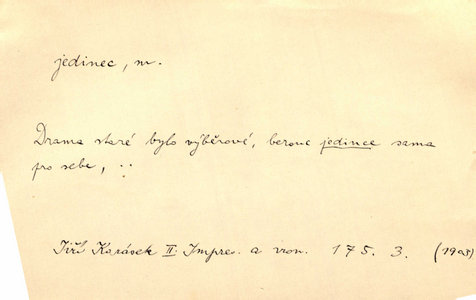 jedinec, m.
Drama staré bylo výběrové, berouc jedince sama
pro sebe, ..
Jiří Karásek II. Impre. a iron. 175. 3. (1903)